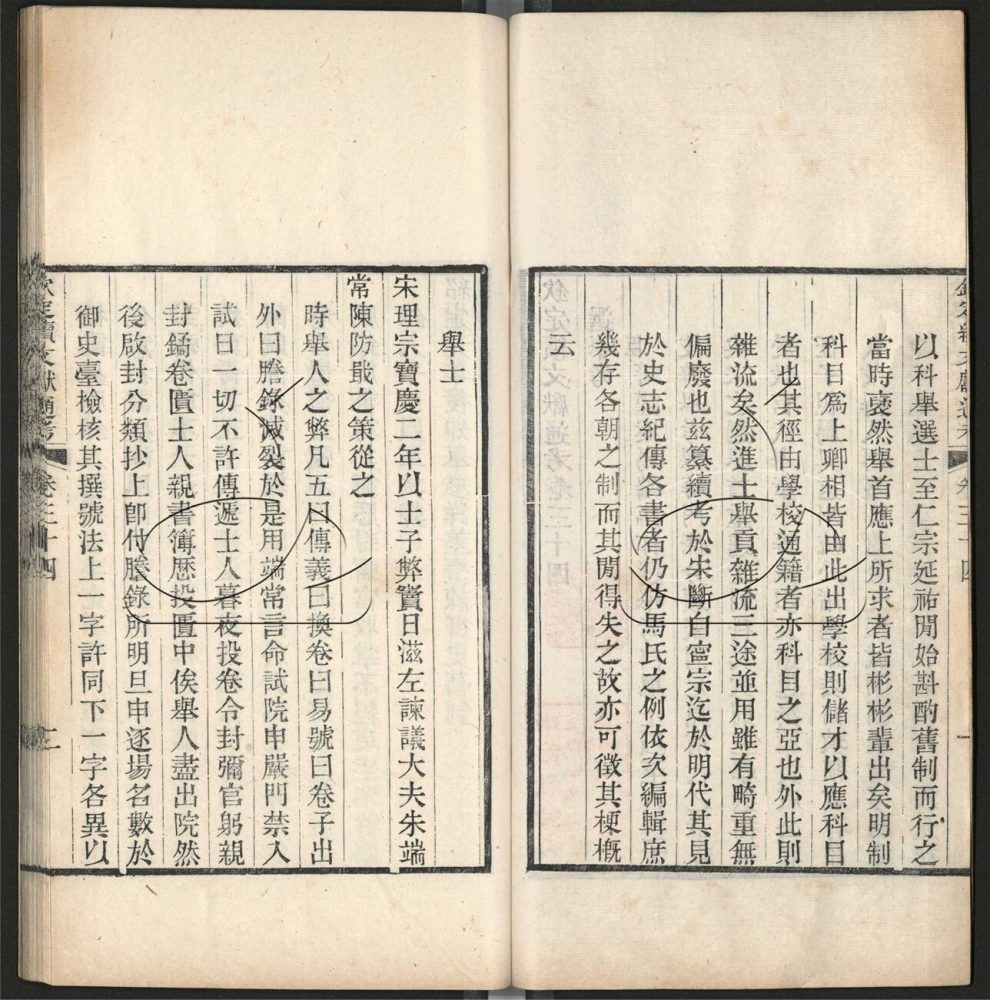 以科舉選士至仁宗延祐閒始斟酌舊制而行之
當時裒然舉首應上所求者皆彬彬輩出矣明制
科目爲上卿相皆由此出學校則儲才以應科目
者也其徑由學校通籍者亦科目之亞也外此則
雜流矣然進士舉貢雜流三途並用雖有畸重無
偏廢也茲纂續考於宋斷自寧宗迄於明代其見
於史志紀傳各書者仍仿馬氏之例依次編輯庶
幾存各朝之制而其閒得失之故亦可徵其梗概
云
舉士
宋理宗寶慶二年以士子弊竇日滋左諫議大夫朱端
常陳防戢之策從之
時舉人之弊凡五曰傳義曰換卷曰易號曰卷子出
外曰謄錄滅裂於是用端常言命試院申嚴門禁入
試日一切不許傳遞士人暮夜投卷令封彌官躬親
封鐍卷匱士人親書簿歴投匱中俟舉人盡出院然
後啟封分類抄上卽付謄錄所明旦申逐場名數於
御史臺檢核其撰號法上一字許同下一字各異以
欽定續文獻通考 卷三十四 二